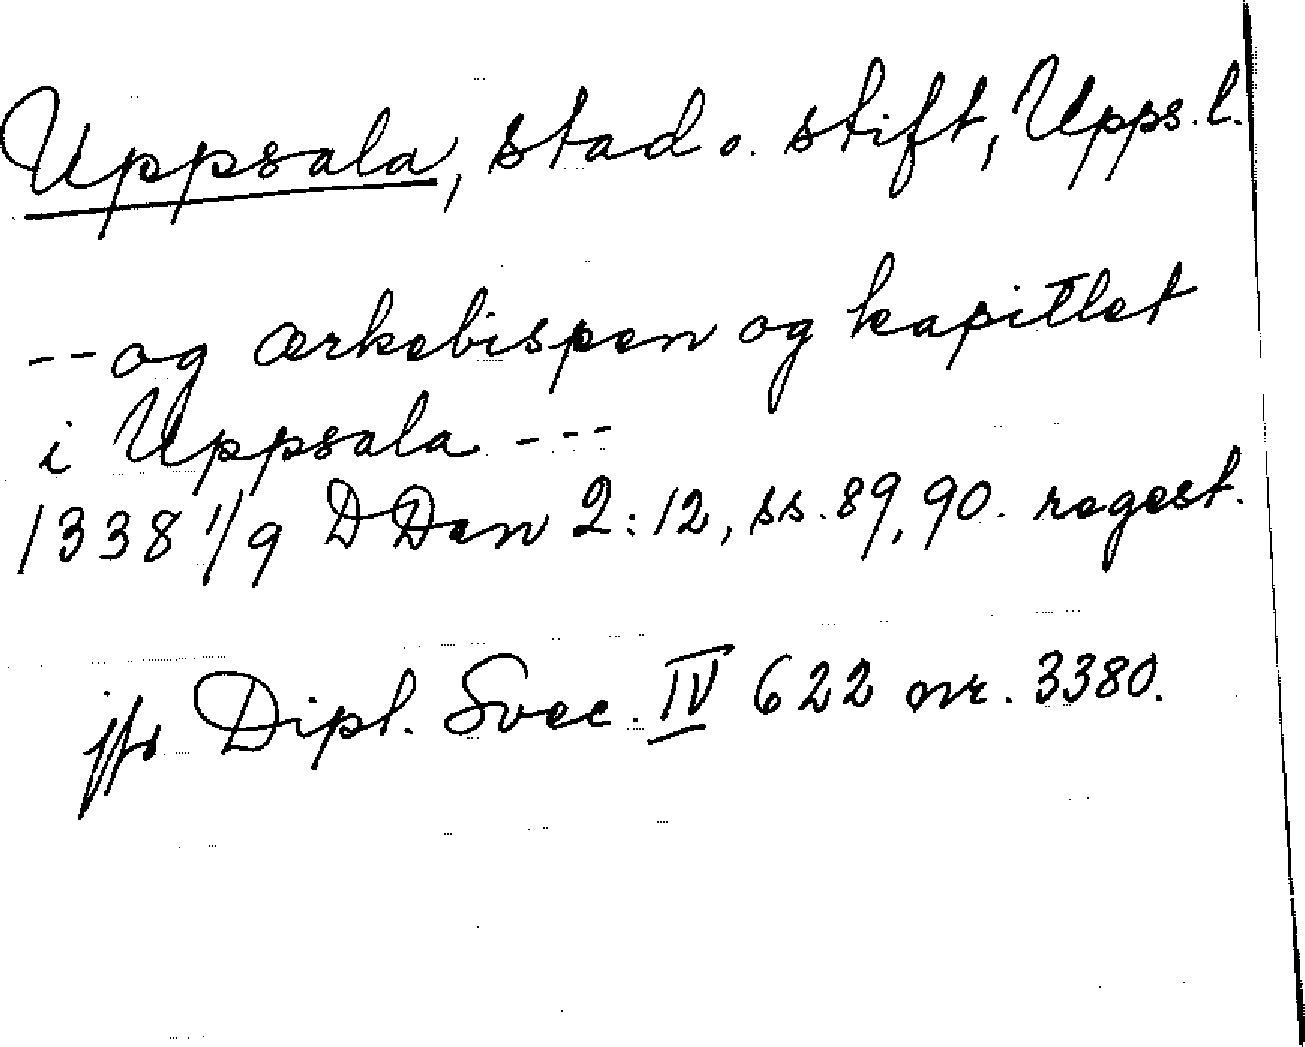 Uppsala, stad o. stift, Upps. l.
-- og ærkebispen og kapitlet
i Uppsala ---
1338 1/9 DDan 2:12, ss. 89, 90. regest.
jfr Dipl. Svec. IV 622 nr. 3380.